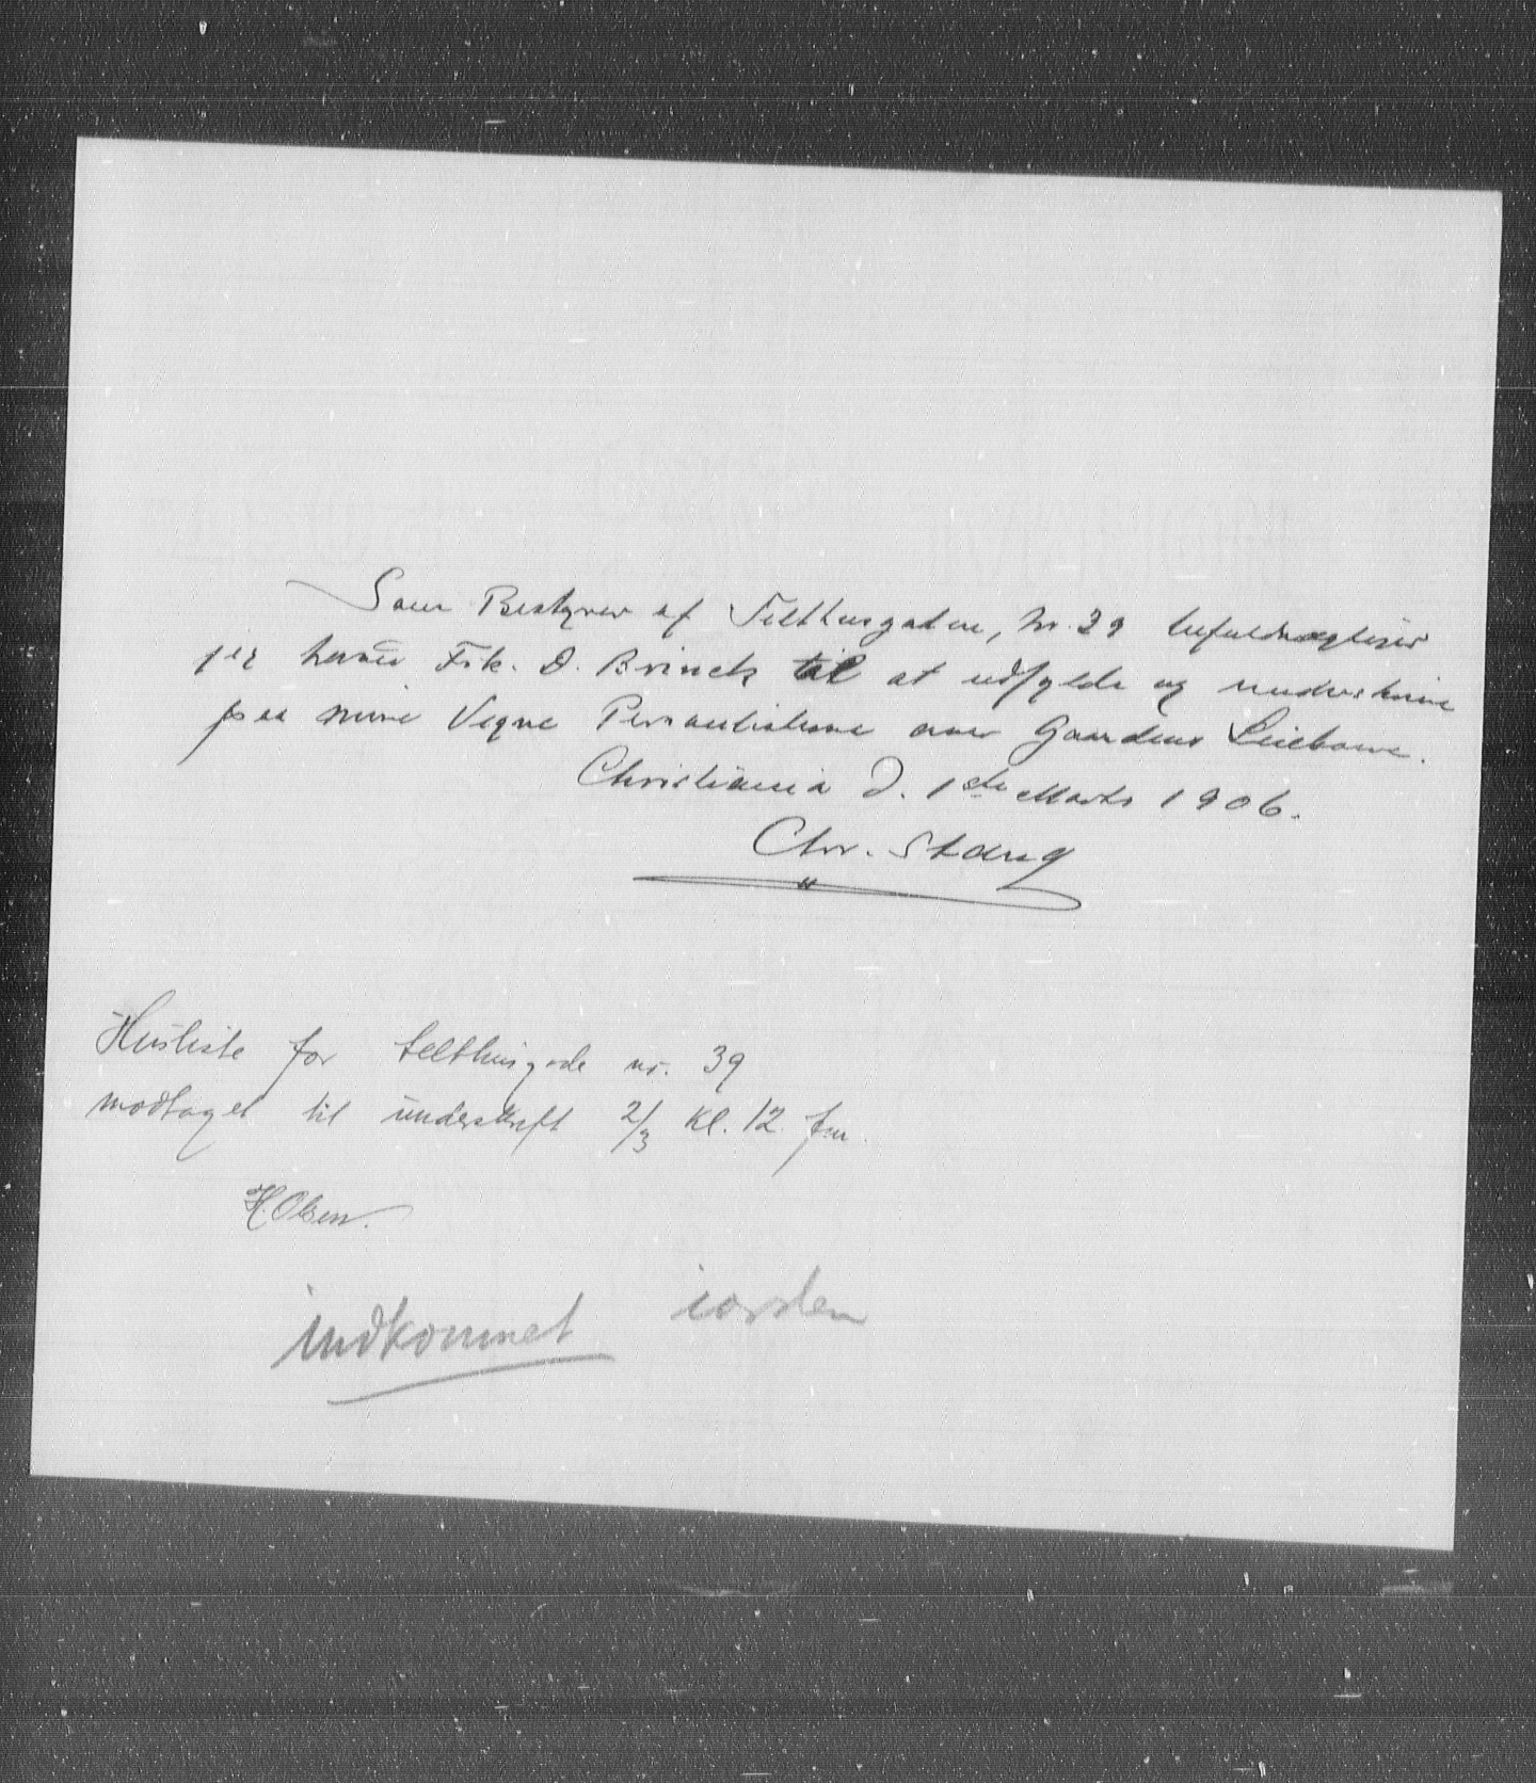 Som Bestyrer af Telthusgaden, No. 39 befuldmægtiger
jeg herved Frk. D. Brinck til at udfylde og underskrive
paa mine Vegne Personlisterne over Gaardens Leieboere.
Christiania d. 1ste Marts 1906.
Chr. Stang
Husliste for telthusgade no. 39
modtaget til underskrift 2/3 Kl. 12 fm.
H. Olsen.
indkommet